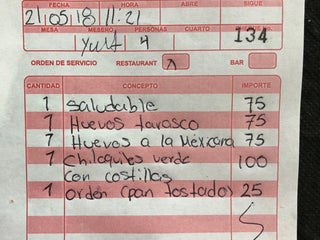 FECHA HORA ABRE SIGUE
21/05/18 11:21
MESA MESERO PERSONAS CUARTO
4 134
ORDEN DE SERVICIO RESTAURANT X BAR
CANTIDAD CONCEPTO IMPORTE
1 Saludable 75
1 Huevos tarasco 75
1 Huevos a la Méxicana 75
1 Chilaquiles verde 100
con costillas
1 Orden (pan tostado) 25